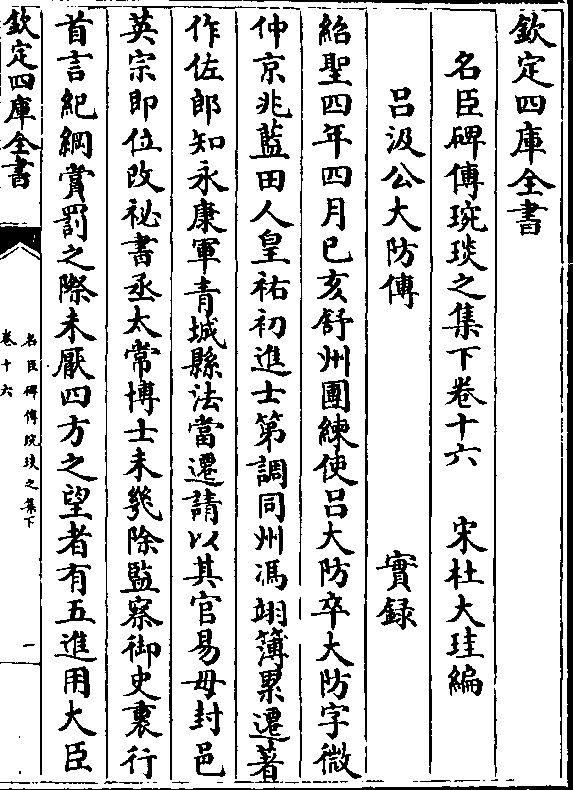 欽定四庫全書
名臣碑傳琬琰之集下卷十六 宋杜大珪編
呂汲公大防傳 實録
紹聖四年四月己亥舒州團練使呂大防卒大防字微
仲京兆藍田人皇祐初進士第調同州馮翊簿累遷著
作佐郎知永康軍青城縣法當遷請以其官易母封邑
英宗即位改祕書丞太常博士未幾除監察御史裏行
首言紀綱賞罰之際未厭四方之望者有五進用大臣
欽定四庫全書
名臣碑傳琬琰之集下
卷十六
一